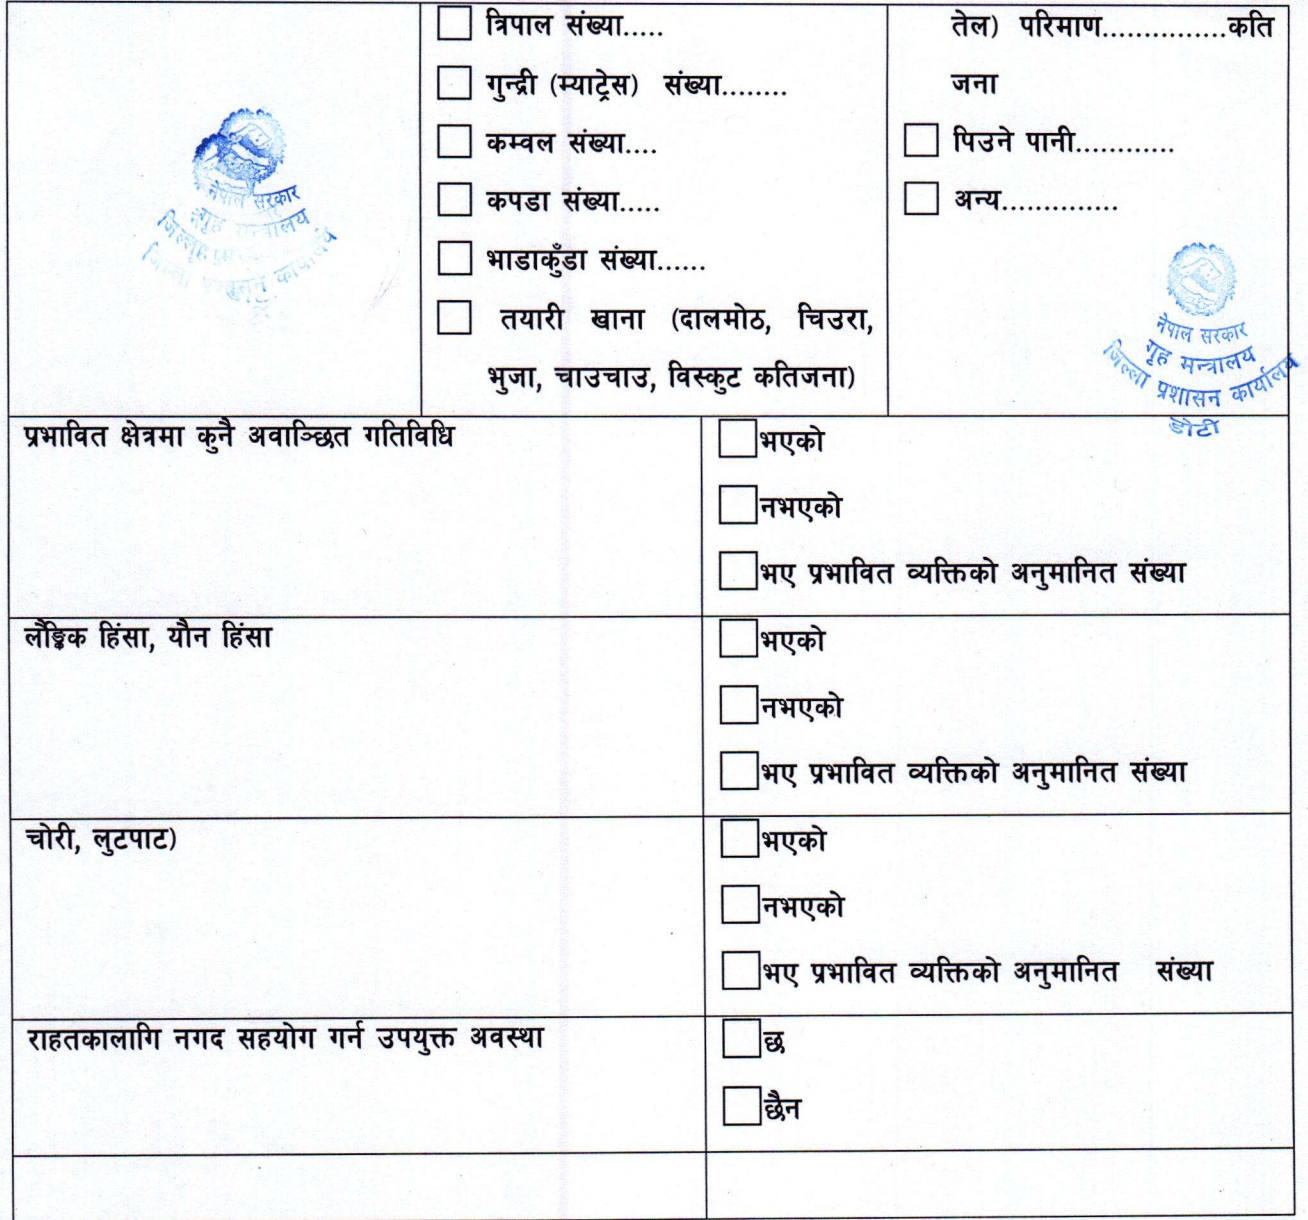 त्रिपाल संख्या.....
गुन्द्री (म्याट्रेस) संख्या........
कम्वल संख्या....
कपडा संख्या.....
भाडाकुँडा संख्या......
तयारी खाना (दालमोठ, चिउरा,
भुजा, चाउचाउ, विस्कुट कतिजना)
तेल) परिमाण...............कति
जना
पिउने पानी............
अन्य..............
नेपाल सरकार
नेपाल सरकार
गृह मन्त्रालय
जिल्ला प्रशासन कार्यालय
डोटी
प्रभावित क्षेत्रमा कुनै अवाञ्छित गतिविधि
भएको
नभएको
भए प्रभावित व्यक्तिको अनुमानित संख्या
लैङ्गिक हिंसा, यौन हिंसा
भएको
नभएको
भए प्रभावित व्यक्तिको अनुमानित संख्या
चोरी, लुटपाट)
भएको
नभएको
भए प्रभावित व्यक्तिको अनुमानित संख्या
राहतकालागि नगद सहयोग गर्न उपयुक्त अवस्था
छ
छैन